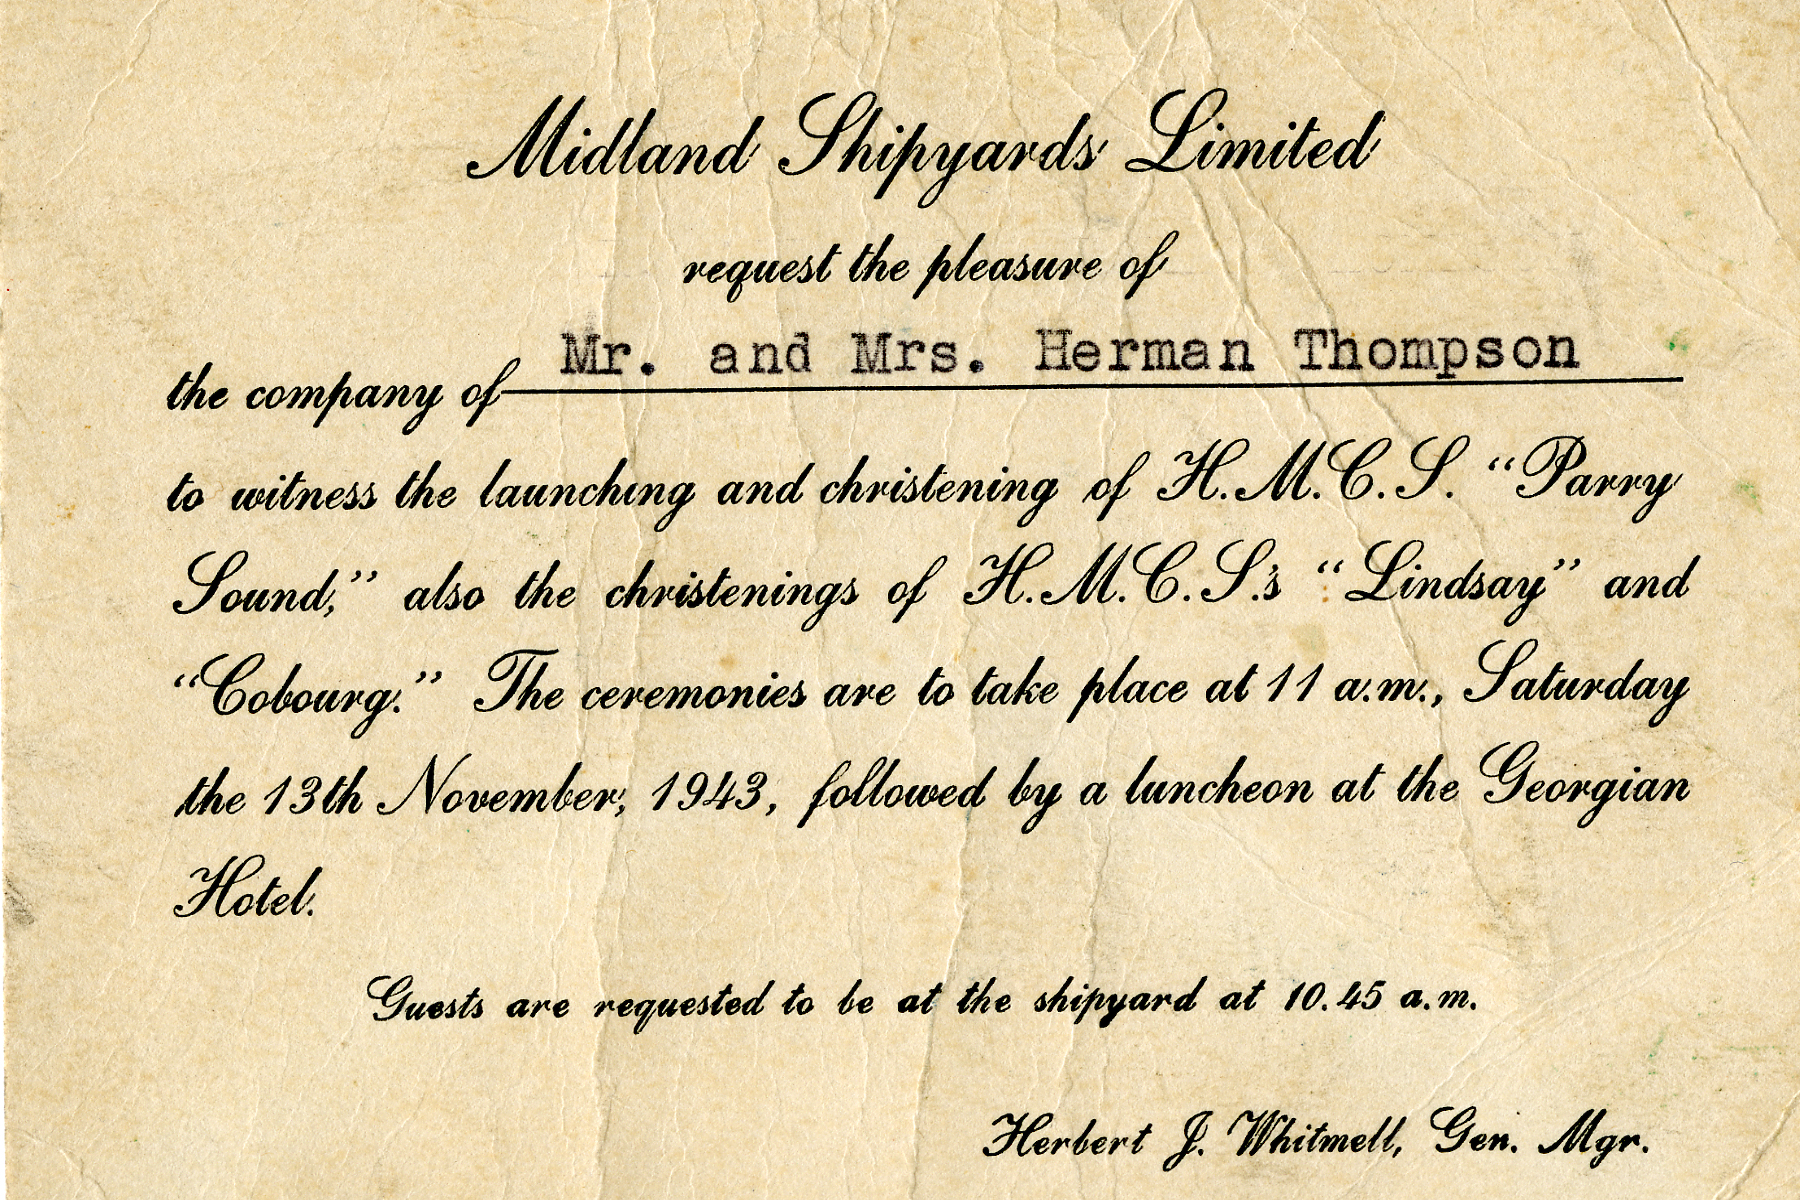 Midland Shipyards Limited
request the pleasure of
Mr. and Mrs. Herman Thompson
the company of
to witness the launching and christening of H.M.C.S. “Parry
Sound,” also the christenings of H.M.C.S.'s “Lindsay” and
“Cobourg.” The ceremonies are to take place at 11 a.m., Saturday
the 13th November, 1943, followed by a luncheon at the Georgian
Hotel.
Guests are requested to be at the shipyard at 10.45 a.m.
Herbert J. Whitmell, Gen. Mgr.